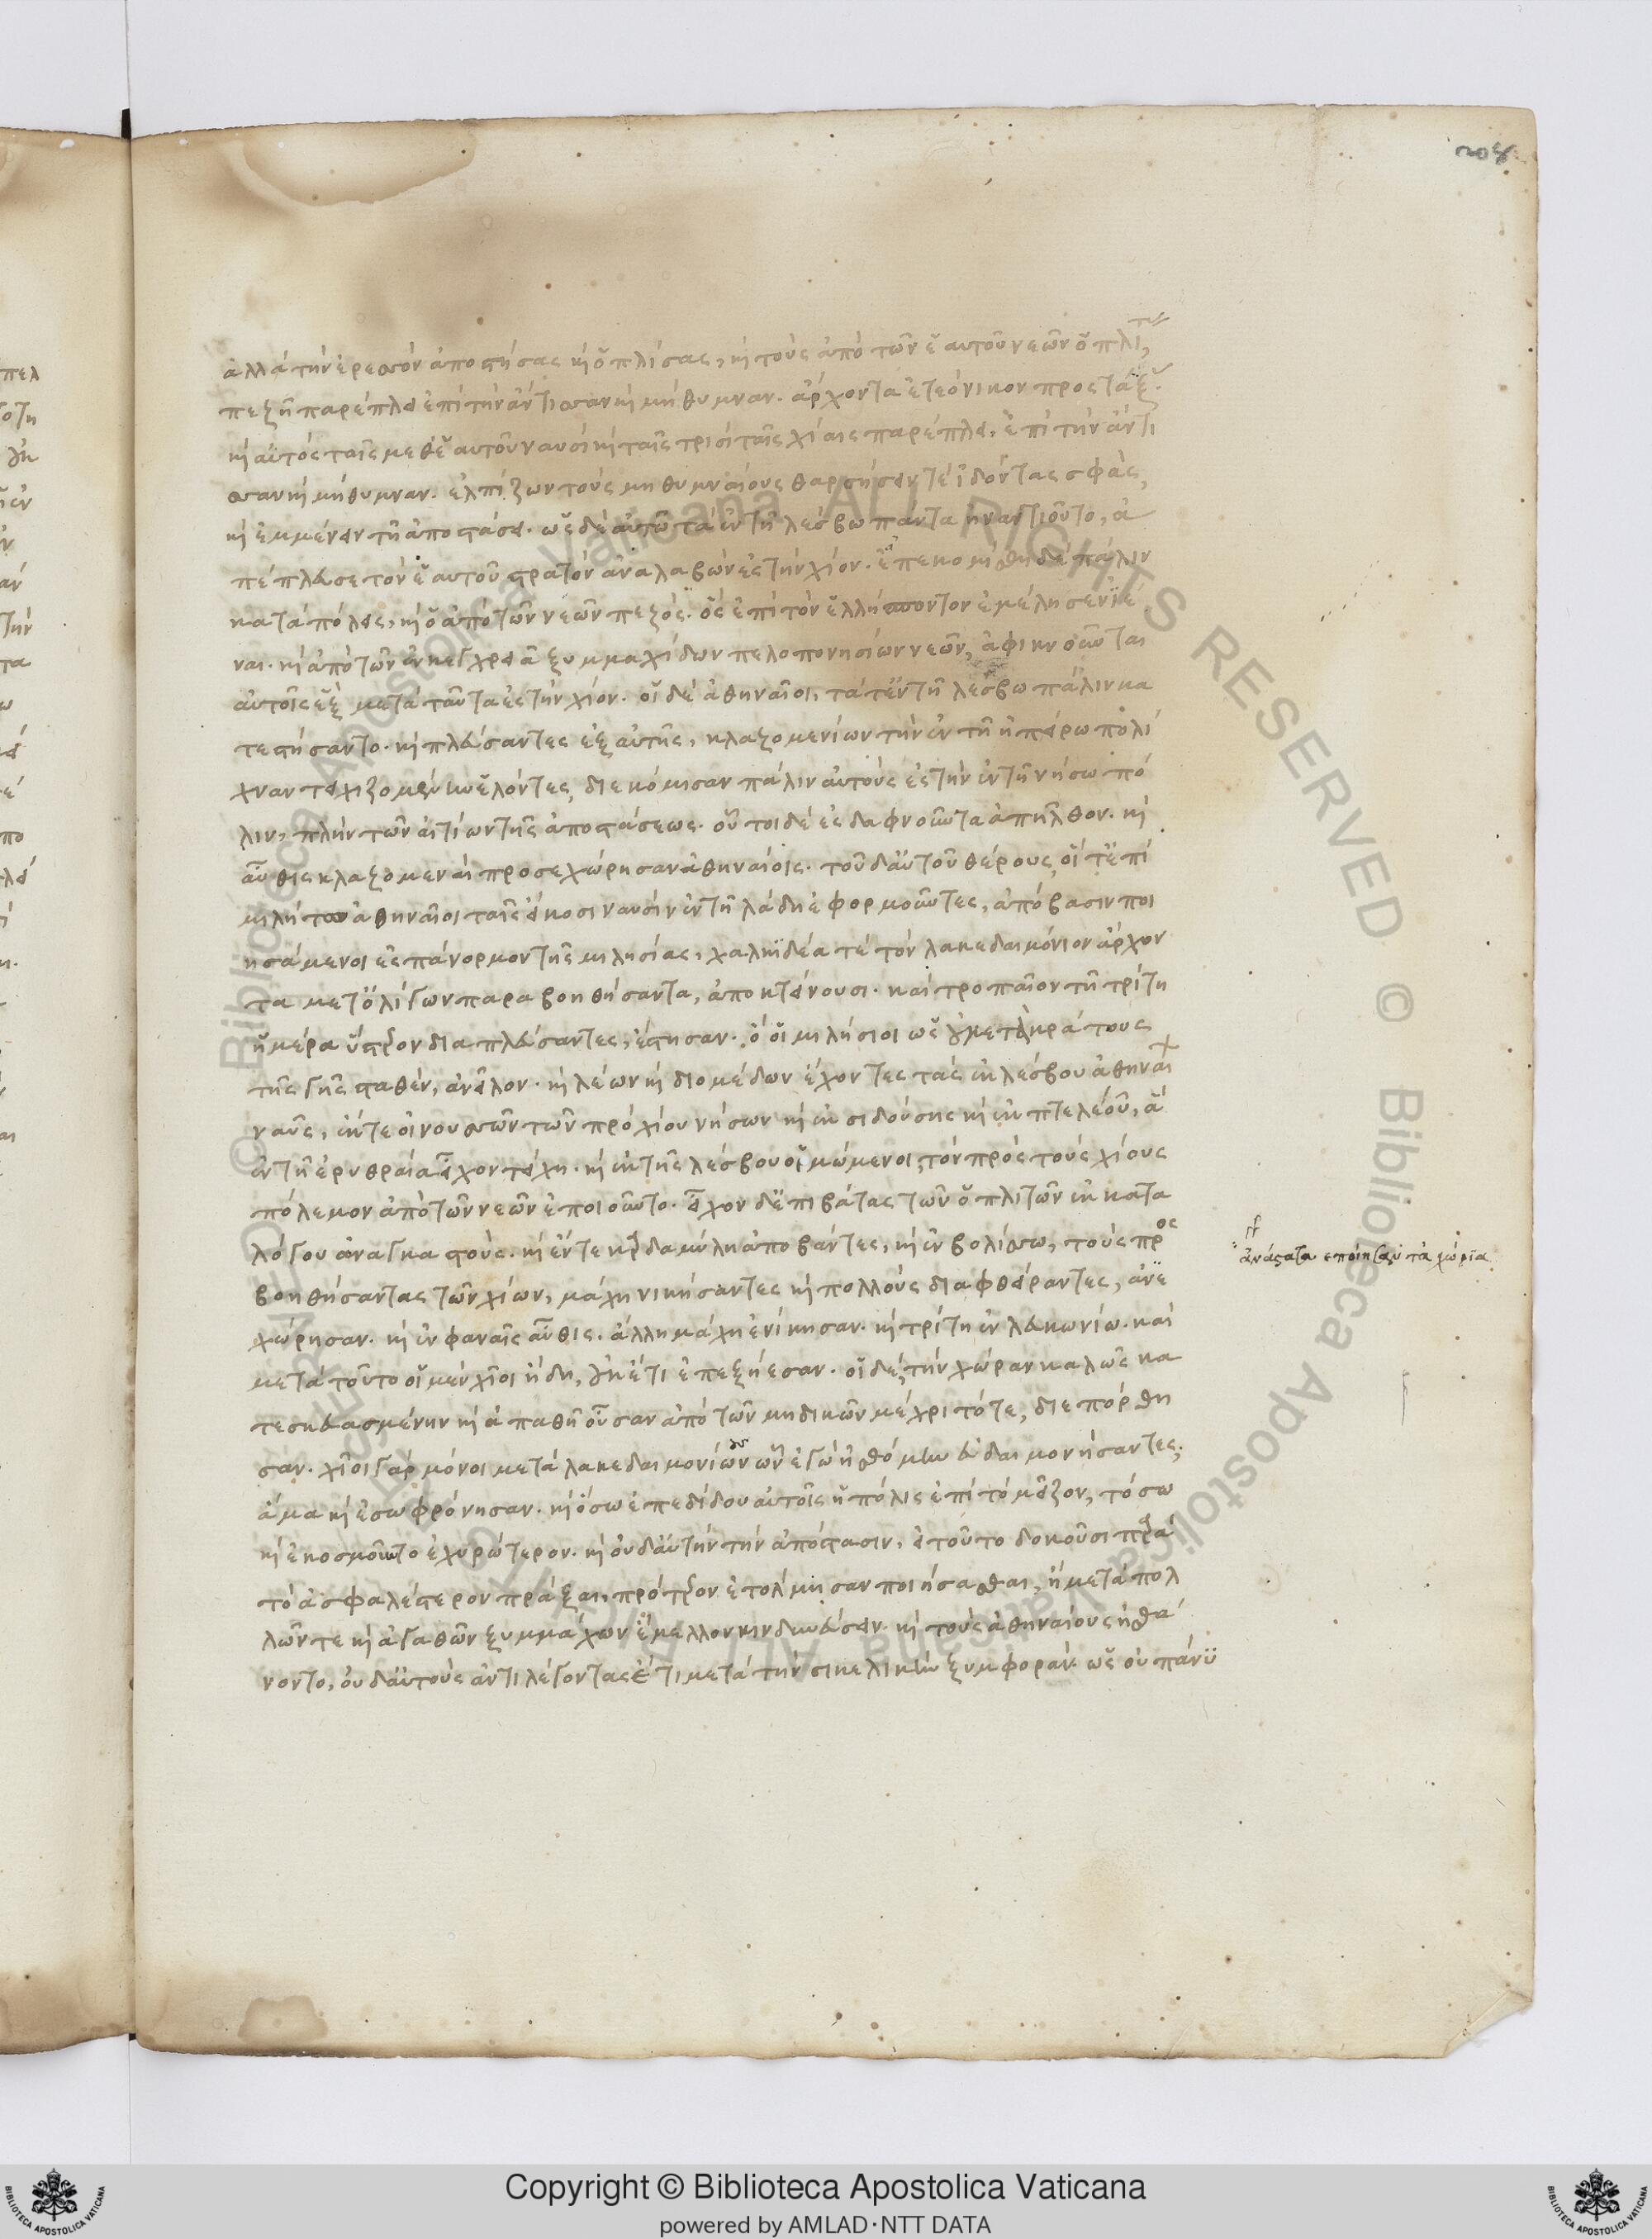 204
ἀλλὰ τὴν ἔρεσον ἀποστήσας κ(αὶ) ὁπλίσας, κ(αὶ) τοὺς ἀπὸ τῶν ἑαυτοῦ νεῶν ὁπλίτας
πεζῆ παρέπλει ἐπὶ τὴν ἄντισσαν κ(αὶ) μήθυμναν. ἄρχοντα ἐτεόνικον προστάξας.
κ(αὶ) αὐτὸς ταῖς μεθ' ἑαυτοῦ ναυσὶ κ(αὶ) ταῖς τρισὶ ταῖς χίαις παρέπλει, ἐπὶ τὴν ἄντι
σσαν κ(αὶ) μήθυμναν. ἐλπίζων τοὺς μηθυμναίους θαρσήσειν τὲ ἰδόντας σφᾶς,
κ(αὶ) ἐμμένειν τῆ ἀποστάσει. ὡς δὲ αὐτῶ τὰ ἐν τῆ λέσβω πάντα ἠναντιοῦτο, ἀ
πέπλευσε τὸν ἑαυτοῦ στρατὸν ἀναλαβὼν ἐς τὴν χίον. ἐπεκομίσθη δὲ πάλιν
κατὰ πόλεις, κ(αὶ) ὁ ἀπὸ τῶν νεῶν πεζός. ὃς ἐπὶ τὸν ἑλλήσποντον ἐμέλησεν ἰέ
ναι. κ(αὶ) ἀπὸ τῶν ἐν κεγχρειᾶ ξυμμαχίδων πελοπονησίων νεῶν, ἀφικνοῦνται
αὐτοῖς ἓξ μετὰ ταῦτα ἐς τὴν χίον. οἱ δὲ ἀθηναῖοι, τά τ' ἐν τῆ λέσβω πάλιν κα
τεστήσαντο. κ(αὶ) πλεύσαντες ἐξ αὐτῆς, κλαζομενίων τὴν ἐν τῆ ἠπείρω πολί
χναν τειχιζομένην ἑλόντες, διεκόμισαν πάλιν αὐτοὺς ἐς τὴν ἐν τῆ νήσω πό
λιν, πλὴν τῶν αἰτίων τῆς ἀποστάσεως. οὗτοι δὲ ἐς δαφνοῦντα ἀπῆλθον. κ(αὶ)
αὖθις κλαζομεναὶ προσεχώρησαν ἀθηναίοις. τοῦ δ' αὐτοῦ θέρους, οἵ τ' ἐπὶ
μιλήτω ἀθηναῖοι ταῖς εἴκοσι ναυσὶν ἐν τῆ λάδη ἐφορμοῦντες, ἀπόβασιν ποι
ησάμενοι ἐς πάνορμον τῆς μιλησίας, χαλκιδέα τὲ τὸν λακεδαιμόνιον ἄρχον
τα μετ' ὀλίγων παραβοηθήσαντα, ἀποκτείνουσι. καὶ τροπαῖον τῆ τρίτη
ἡμέρα ὕστερον διαπλεύσαντες, ἔστησαν. ὃ οἱ μιλήσιοι ὡς οὐ μετὰ κράτους
τῆς γῆς σταθὲν, ἀνεῖλον. κ(αὶ) λέων κ(αὶ) διομέδων ἔχοντες τὰς ἐκ λέσβου ἀθηναί(ων)
ναῦς, ἔκ τε οἰνουσσῶν τῶν πρὸ χίου νήσων κ(αὶ) ἐκ σιδούσης κ(αὶ) ἐκ πτελεοῦ, ἃ
ἐν τῆ ἐρυθραία εἶχον τείχη. κ(αὶ) ἐκ τῆς λέσβου ὁρμώμενοι, τὸν πρὸς τοὺς χίους
πόλεμον ἀπὸ τῶν νεῶν ἐποιοῦντο. εἶχον δ' ἐπιβάτας τῶν ὁπλιτῶν ἐκ κατα
λόγου ἀναγκαστούς. κ(αὶ) ἔν τε καρδαμύλη ἀποβάντες, κ(αὶ) ἐν βολίσσω, τοὺς προς
βοηθήσαντας τῶν χίων, μάχη νικήσαντες κ(αὶ) πολλοὺς διαφθείραντες, ἀνε
χώρησαν. κ(αὶ) ἐν φαναῖς αὖθις. ἄλλη μάχη ἐνίκησαν. κ(αὶ) τρίτη ἐν λευκωνίω. καὶ
μετὰ τοῦτο οἱ μὲν χῖοι ἤδη, οὐκέτι ἐπεξήεσαν. οἱ δὲ, τὴν χώραν καλῶς κα
τεσκευασμένην κ(αὶ) ἀπαθῆ οὖσαν ἀπὸ τῶν μηδικῶν μέχρι τότε, διεπόρθη
σαν. χῖοι γὰρ μόνοι μετὰ λακεδαιμονίους ὧν ἐγὼ ἠσθόμην εὐδαιμονήσαντες,
ἅμα κ(αὶ) ἐσωφρόνησαν. κ(αὶ) ὅσω ἐπεδίδου αὐτοῖς ἡ πόλις ἐπὶ τὸ μεῖζον, τόσω
κ(αὶ) ἐκοσμοῦντο ἐχυρώτερον. κ(αὶ) οὐδ' αὐτὴν τὴν ἀπόστασιν, εἰ τοῦτο δοκοῦσι παρὰ
τὸ ἀσφαλέστερον πρᾶξαι, πρότερον ἐτόλμησαν ποιήσασθαι, ἢ μετὰ πολ
λῶν τε κ(αὶ) ἀγαθῶν ξυμμάχων ἔμελλον κινδυνεύσειν. κ(αὶ) τοὺς ἀθηναίους ἠσθά
νοντο, οὐδ' αὐτοὺς ἀντιλέγοντας ἔτι μετὰ τὴν σικελικὴν ξυμφορὰν ὡς οὐ πάνυ
ἀνάστατα ἐποίησαν τὰ χωρία
Copyright © Biblioteca Apostolica Vaticana
powered by AMLAD·NTT DATA